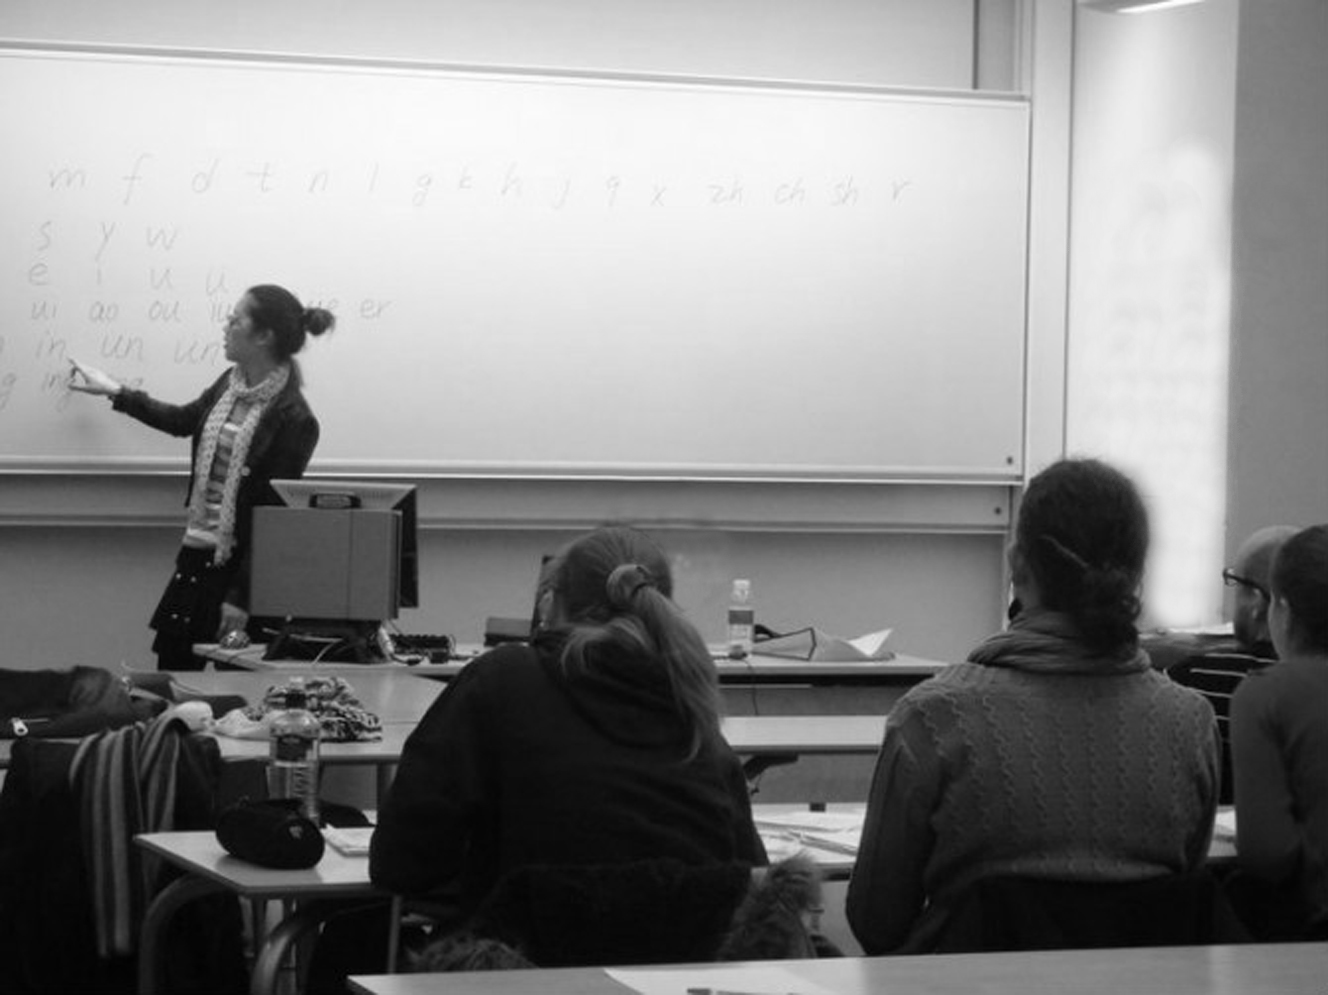 m f d t n l g k h j q x zh ch sh r
s y w
e i u ü
ui ao ou iu üe er
in un ün
g ing